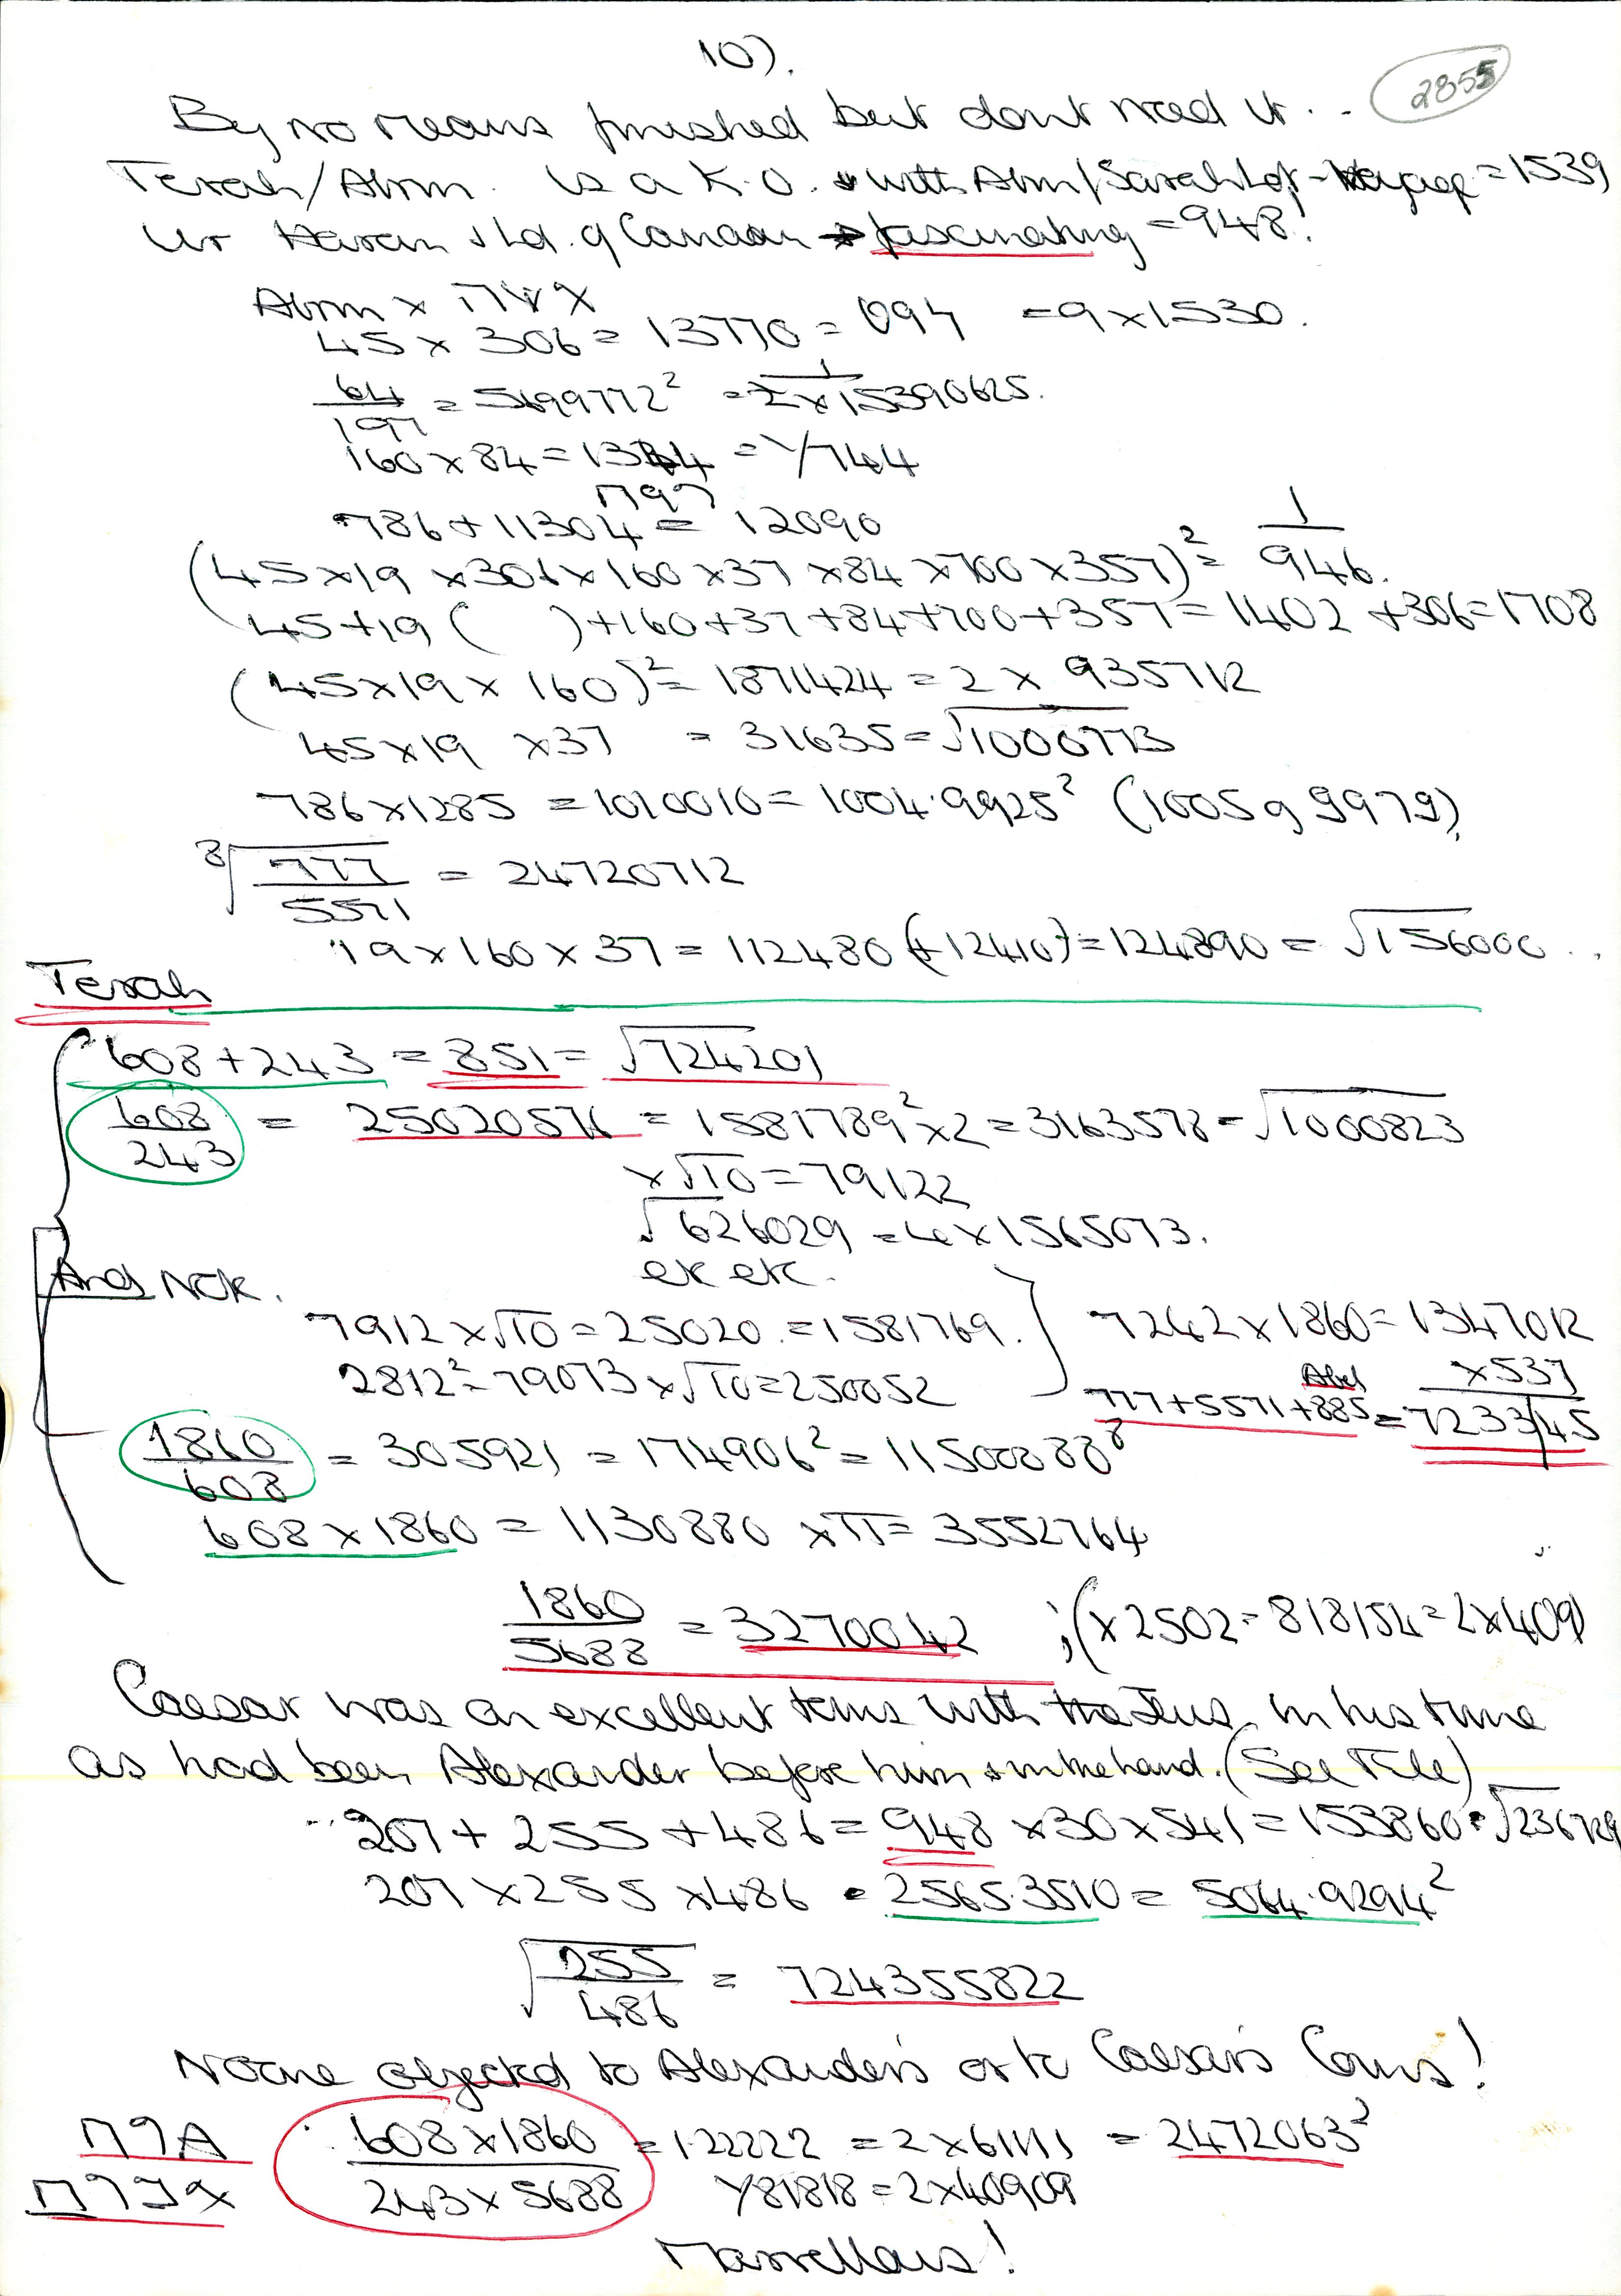 10).
2855
By no means finished but dont need it . .
Terah/Abrm. is a K.O. & with Abm/Sarah Lot - = 1539
Ur Haran & Ld. of Canaan → fascinating = 948!
Abrm ×
45 × 306 = 13770 = 1/0 = 9 × 1530.
64/197 = 5699772² = 1/2×15390625.
160 × 84 = 1344 = 1/744
786 + 11304 = 12090
(45 × 19 × 306 × 160 × 37 × 84 × 700 × 357)² = 1/946.
45 + 19 ( ) + 160 + 37 + 84 + 700 + 357 = 1402 + 306 = 1708
(45 × 19 × 160)² = 1871424 = 2 × 935712
45 × 19 × 37 = 31635 = √1000773
786 × 1285 = 1010010 = 1004.9925² (1005 9 9979)
⁸√777/5571 = 24720712
19 × 160 × 37 = 112480 (+12410) = 124890 = √156000 . .
Terah
608 + 243 = 851 = √724201
608/243 = 25020576 = 1581789² × 2 = 3163578 = √1000823
× √10 = 79122
√626029 = 4 × 1565073.
etc etc.
And Note.
7912 × √10 = 25020 = 1581769. 7242 × 1860 = 1347012
2812² = 79073 × √10 = 250052 × 537
Abel
777 + 5571 + 885 = 7233/45
1860/608 = 305921 = 174906² = 11500888⁸
608 × 1860 = 1130880 × π = 3552764
1860/5688 = 3270042 ; (× 2502 = 818154 = 2 × 409)
Caesar was on excellent terms with the Jews in his time
as had been Alexander before him & in the hand. (See File)
207 + 255 + 486 = 948 × 30 × 541 = 153860 · √236729
207 × 255 × 486 = 2565.3510 = 5064.9294²
√255/486 = 724355822
Noone objected to Alexander's or to Caesar's Coins!
608 × 1860/243 × 5688 = 1.22222 = 2 × 61111 = 2472063²
1/81818 = 2 × 40909
Marvellous!